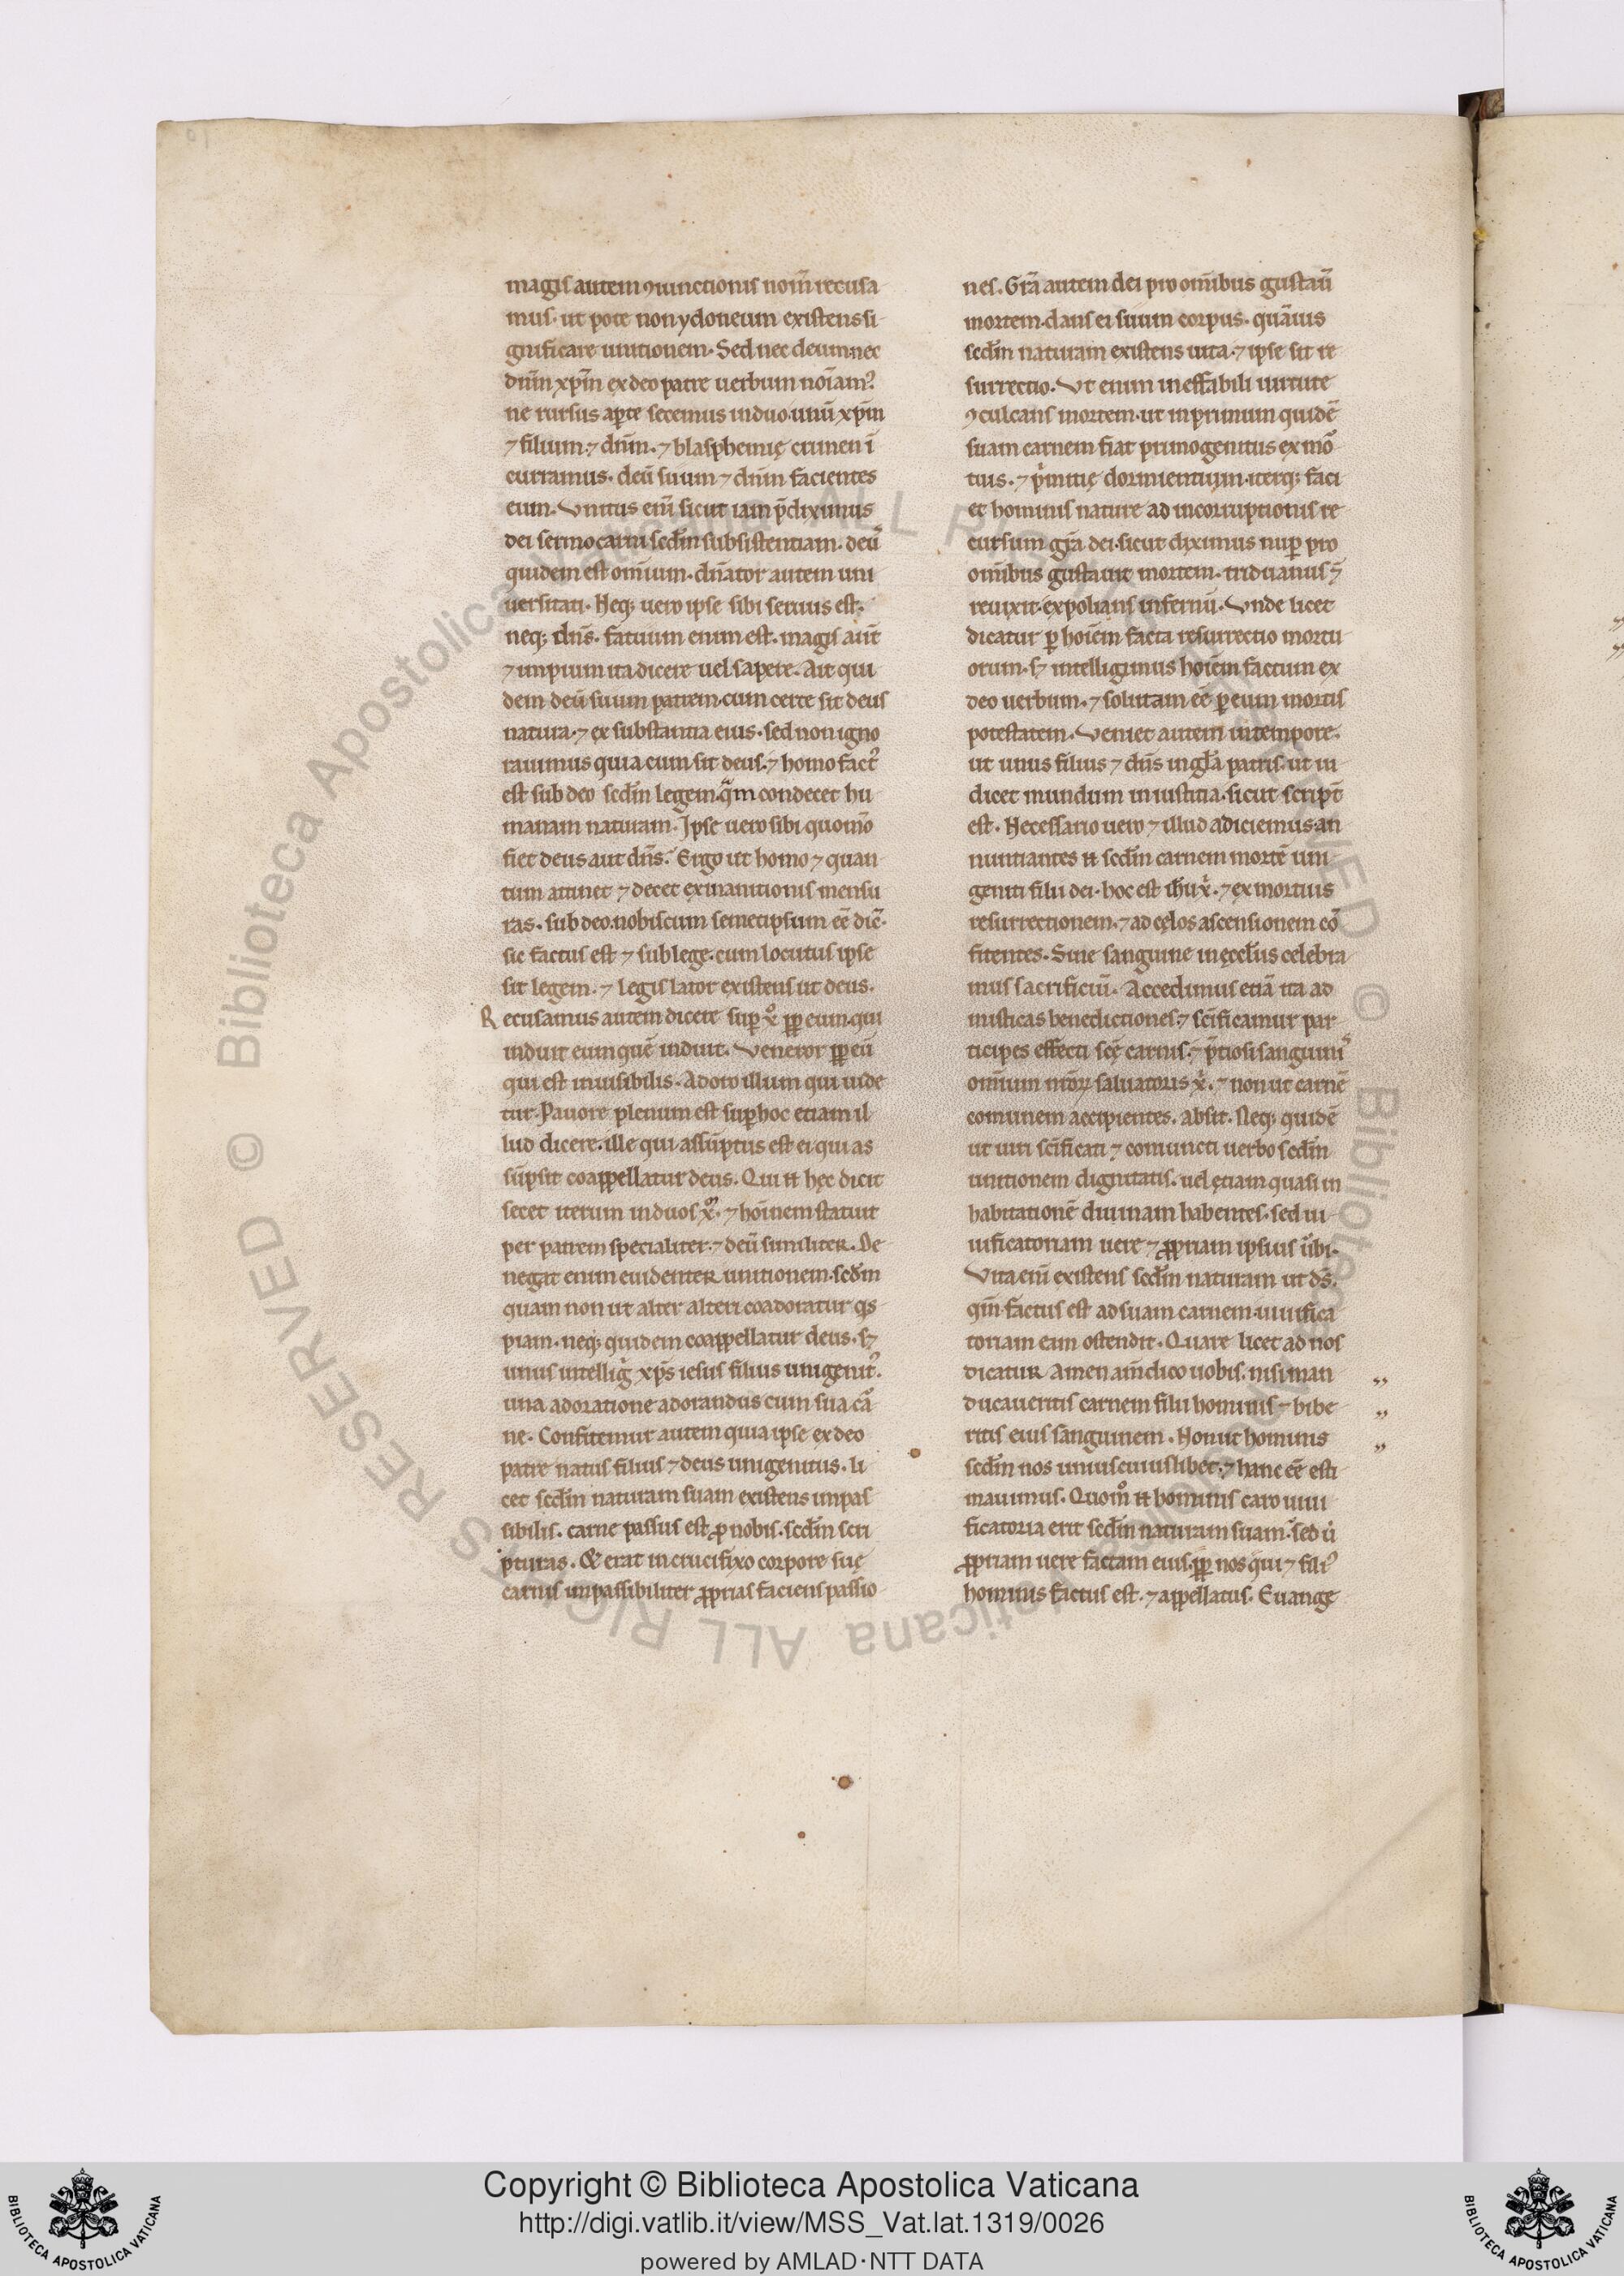 magis autem ꝯiunctionis nom̄ recusa
mus. ut pote non ydoneum existens si
gnificare unitionem. Sed nec deum nec
dn̄m xp̄m ex deo patre uerbum noīamꝰ.
ne rursus aꝑte secemus in duo unū xp̄m
⁊ filium ⁊ dn̄m. ⁊ blasphemię crimen ī
curramus. deū suum ⁊ dn̄m facientes
eum. Vnitus eni̅ sicut iam p̄diximus
dei sermo carni scd̄m subsistentiam. deus̄
quidem est om̄ium. dn̄ator autem uni
uersitati. Neq; uero ipse sibi seruus est.
neq; dn̄s. fatuum enim est. magis aut̄
⁊ impium ita dicere uel sapere. Ait qui
dem deū suum patrem. cum certe sit deus
natura. ⁊ ex substantia eius. sed non igno
rauimus quia cum sit deus. ⁊ homo factꝰ
est sub deo scd̄m legem. q̄m condecet hu
manam naturam. Ipse uero sibi quom̄o
fiet deus aut dn̄s. Ergo ut homo ⁊ quan
tum attinet ⁊ decet exinanitionis mensu
ras. sub deo nobiscum semetipsum eē dic̄.
sic factus est ⁊ sub lege. cum locutus ipse
sit legem. ⁊ legis lator existens ut deus.
Recusamus autem dicere suꝑ xo ꝓꝑ eum qui
induit eum quē induit. Veneror ꝓꝑ eū
qui est inuisibilis. Adoro illum qui uide
tur. Pauore plenum est suꝑ hoc etiam il
lud dicere. ille qui assūptus est ei qui as
sūpsit coappellatur deus. Qui .n. hęc dicit
secet iterum in duos xo̅s. ⁊ hoīnem statuit
per patrem specialiter. ⁊ deū similiter. De
negat enim euidenter unitionem. scd̄m
quam non ut alter alteri coadoratur qs
piam. neq; quidem coappellatur deus. s;
unus intelligr̄ xp̄s iesus filius unigenitꝰ.
una adoratione adorandus cum sua car̄
ne. Confitemur autem quia ipse ex deo
patre natus filius ⁊ deus unigenitus. li
cet scd̄m naturam suam existens impas
sibilis. carne passus est ꝓ nobis. scd̄m scri
pturas. & erat in crucifixo corpore suę
carnis impassibiliter ꝓprias faciens passio
nes. Grā autem dei pro om̄ibus gustauit̄
mortem. dans ei suum corpus. quāuis
scd̄m naturam existens uita. ⁊ ipse sit re
surrectio. Vt enim ineffabili uirtute
ꝯculcans mortem. ut in primum quidē
suam carnem fiat primogenitus ex mor̄
tuis. ⁊ pⁱmitię dormientium. iterq; faci
et hominis nature ad incorruptionis re
cursum grā dei. sicut diximus nuꝑ pro
om̄ibus gustauit mortem. triduanus ⁊
reuixit. expolians infernū. Vnde licet
dicatur ꝑ hoīem facta resurrectio mortu
orum. s; intelligimus hoīem factum ex
deo uerbum. ⁊ solutam eē ꝑ eum mortis
potestatem. Veniet autem in tempore.
ut unus filius ⁊ dn̄s in gl̄a patris. ut iu
dicet mundum in iustitia. sicut script̄
est. Necessario uero ⁊ illud adiciemus. an
nuntiantes .n. scd̄m carnem mortē uni
geniti filii dei. hoc est ih̄u xⁱ. ⁊ ex mortuis
resurrectionem. ⁊ ad cęlos ascensionem con̄
fitentes. Sine sanguine in ęccl̄iis celebra
mus sacrificiū. Accedimus etiā ita ad
misticas benedictiones. ⁊ sc̄ificamur par
ticipes effecti sc̄ę carnis. ⁊ p̄tiosi sanguinꝰ
om̄ium nr̄oꝝ saluatoris xⁱ. ⁊ non ut carnē
comunem accipientes. absit. Neq; quidē
ut uiri sc̄ificati ⁊ coniuncti uerbo scd̄m
unitionem dignitatis. uel etiam quasi in
habitationē diuinam habentes. sed ui
uificatoriam uere ⁊ ꝓpriam ipsius u̅bi.
Vita eni̅ existens scd̄m naturam ut ds̄.
qm̄ factus est ad suam carnem. uiuifica
toriam eam ostendit. Quare licet ad nos
dicatur Amen am̄ dico uobis. nisi man
ducaueritis carnem filii hominis ⁊ bibe
ritis eius sanguinem. Non ut hominis
scd̄m nos uniuscuiuslibet. ⁊ hanc eē esti
mauimus. Quomo .n. hominis caro uiui
ficatoria erit scd̄m naturam suam. sed ů
ꝓpriam uere factam eius. ꝓꝑ nos qui ⁊ filiꝰ
hominis factus est. ⁊ appellatus. Euange
Copyright © Biblioteca Apostolica Vaticana
http://digi.vatlib.it/view/MSS_Vat.lat.1319/0026
powered by AMLAD·NTT DATA